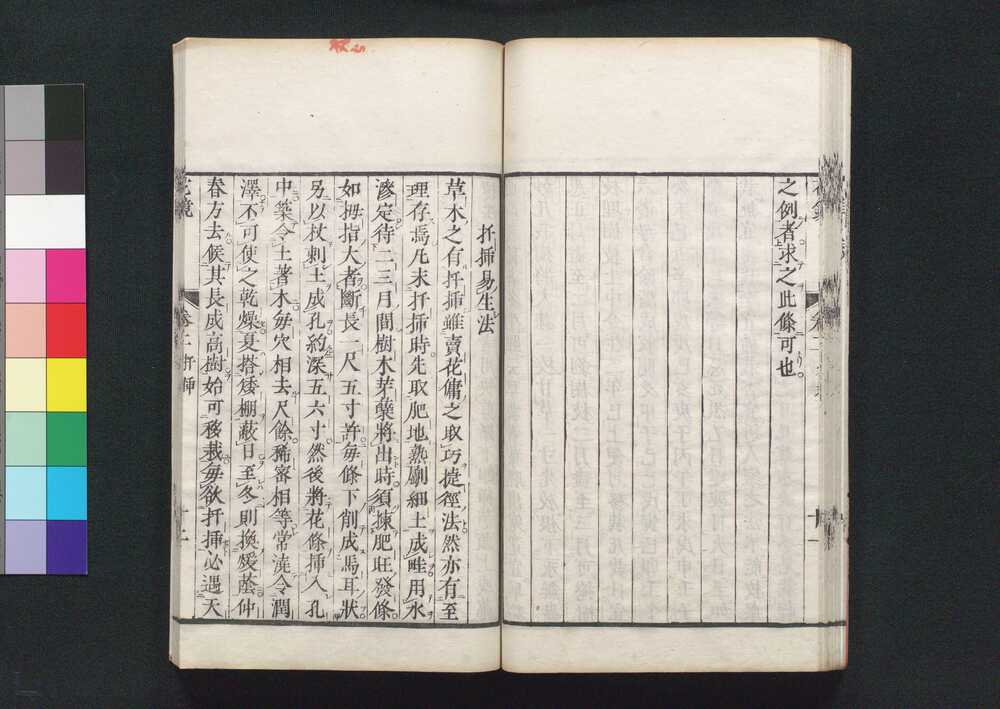 之例者求之此條可也
扦插易生法
草木之有扦插雖賣花傭之取巧捷徑法然亦有至
理存焉凡未扦插時先取肥地熟劚細土成畦用水
滲定待二三月間樹木芽蘖將出時須揀肥旺發條
如拇指大者斷長一尺五寸許每條下削成馬耳狀
另以杖刺土成孔約深五六寸然後將花條插入孔
中築令土著木每穴相去尺餘稀密相等常澆令潤
澤不可使之乾燥夏搭矮棚蔽日至冬則換煖蔭仲
春方去候其長成高樹始可移栽每欲扦插必遇天
花鏡
卷二 扦插
十二